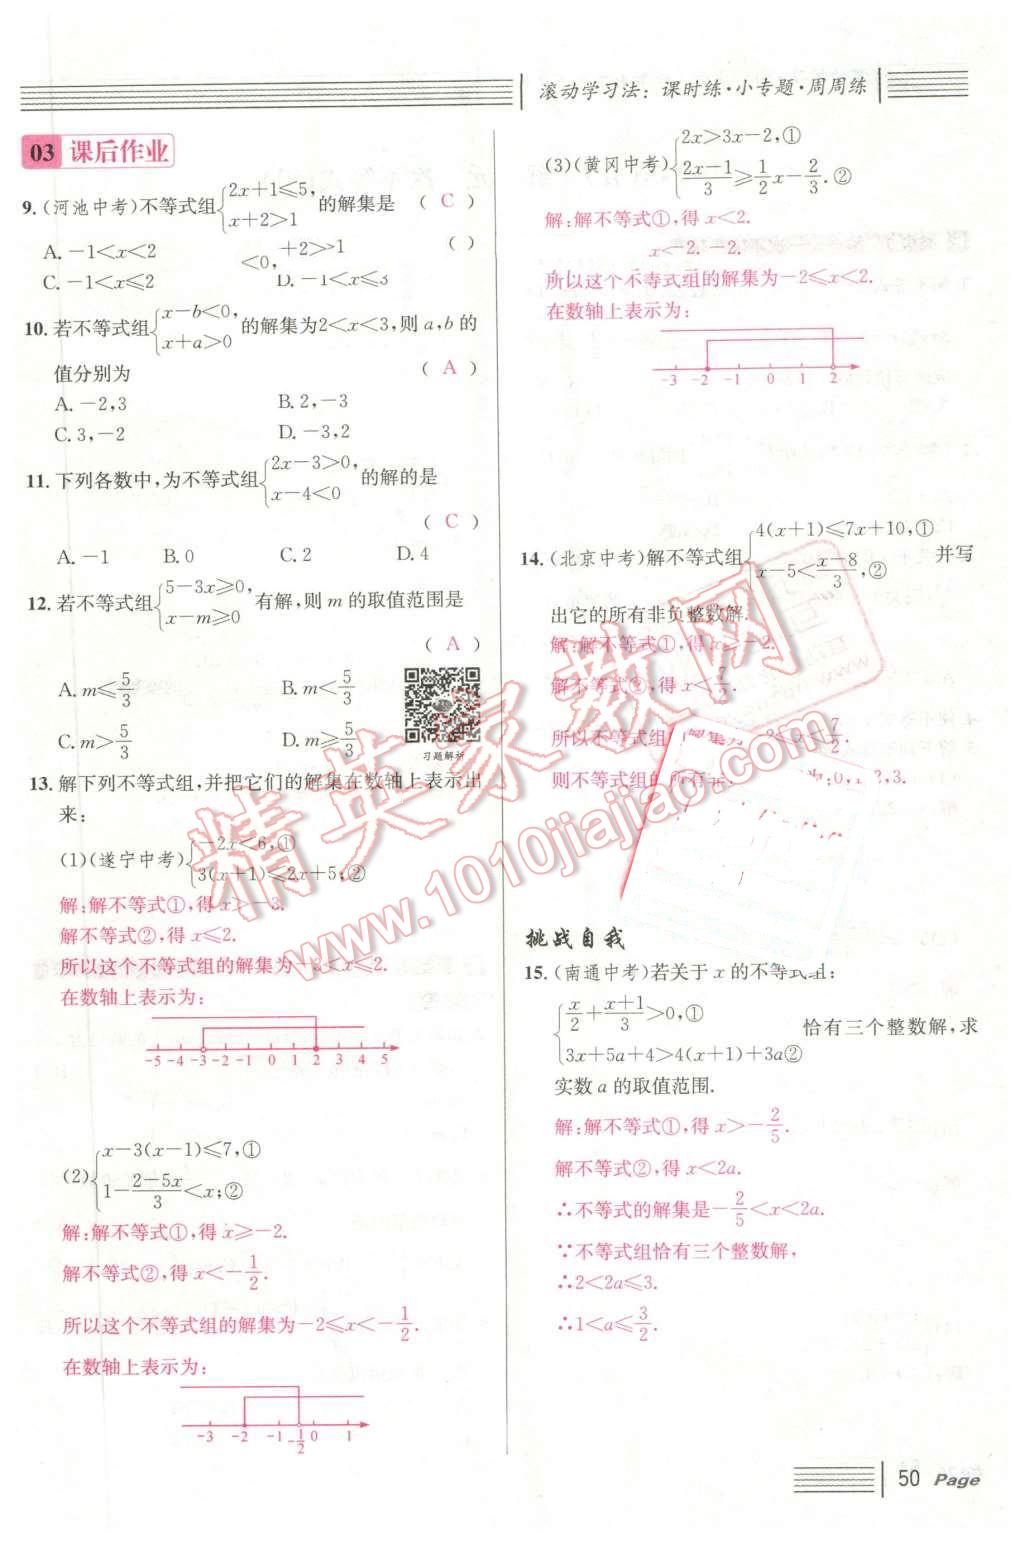 滚动学习法：课时练·小专题·周周练
03 课后作业
9.(河池中考)不等式组{2x+1≤5, x+2>1 的解集是 ( C )
A.-1<x<2
+2>>1 ( )
<0,
C.-1<x≤2 D.-1<x≤3
10.若不等式组{x-b<0, x+a>0 的解集为2<x<3,则a,b的
值分别为 ( A )
A.-2,3 B.2,-3
C.3,-2 D.-3,2
11.下列各数中,为不等式组{2x-3>0, x-4<0 的解的是
( C )
A.-1 B.0 C.2 D.4
12.若不等式组{5-3x≥0, x-m≥0 有解,则m的取值范围是
( A )
A.m≤5/3 B.m<5/3
C.m>5/3 D.m≥5/3
习题解析
13.解下列不等式组,并把它们的解集在数轴上表示出
来:
(1)(遂宁中考){-2x<6,① 3(x+1)≤2x+5;②
解:解不等式①,得x>-3.
解不等式②,得x≤2.
所以这个不等式组的解集为-3<x≤2.
在数轴上表示为:
-5 -4 -3 -2 -1 0 1 2 3 4 5
(2){x-3(x-1)≤7,① 1-(2-5x)/3<x;②
解:解不等式①,得x≥-2.
解不等式②,得x<-1/2.
所以这个不等式组的解集为-2≤x<-1/2.
在数轴上表示为:
-3 -2 -1/2 0 1
(3)(黄冈中考){2x>3x-2,① (2x-1)/3≥1/2x-2/3.②
解:解不等式①,得x<2.
x<-2. -2.
所以这个不等式组的解集为-2≤x<2.
在数轴上表示为:
-3 -2 -1 0 1 2
14.(北京中考)解不等式组{4(x+1)≤7x+10,① x-5<(x-8)/3,② 并写
出它的所有非负整数解.
解:解不等式①,得x≥-2.
解不等式②,得x<7/2.
所以不等式组的解集为-2≤x<7/2.
则不等式组的所有 0,1,2,3.
挑战自我
15.(南通中考)若关于x的不等式组:
{x/2+(x+1)/3>0,① 3x+5a+4>4(x+1)+3a② 恰有三个整数解,求
实数a的取值范围.
解:解不等式①,得x>-2/5.
解不等式②,得x<2a.
∴不等式的解集是-2/5<x<2a.
∵不等式组恰有三个整数解,
∴2<2a≤3.
∴1<a≤3/2.
精英家教网
www.1010jiajiao.com
50 Page